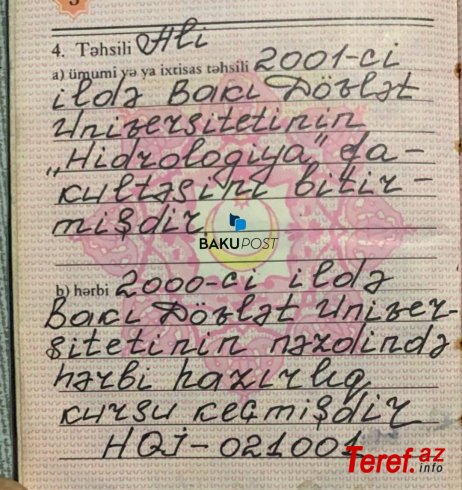 4. Təhsili Ali
a) ümumi və ya ixtisas təhsili 2001-ci
ildə Bakı Dövlət
Universitetinin
„Hidrologiya” fa-
kultəsini bitir-
mişdir
BAKUPOST
b) hərbi 2000-ci ildə
Bakı Dövlət Univer-
sitetinin nəzdində
hərbi hazırlıq
kursu keçmişdir
HQİ-021001
Teref.az
info